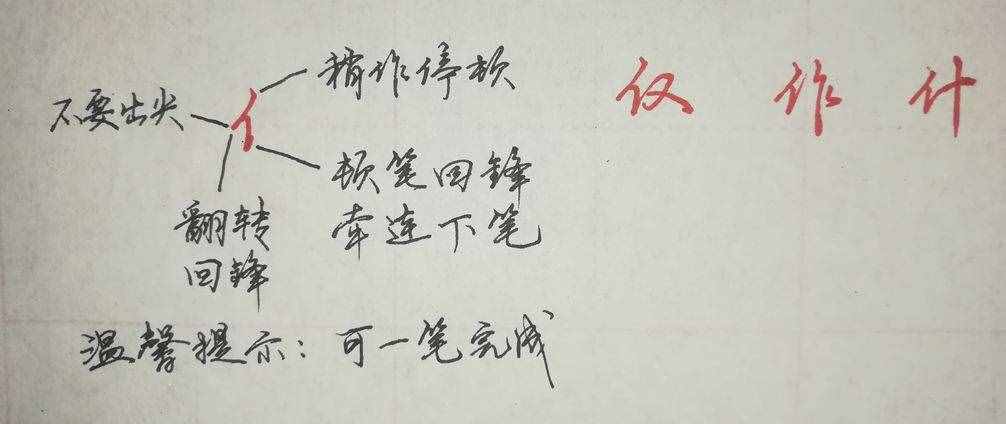 稍作停顿
不要出尖
亻
仅 作 什
顿笔回锋
牵连下笔
翻转
回锋
温馨提示：可一笔完成